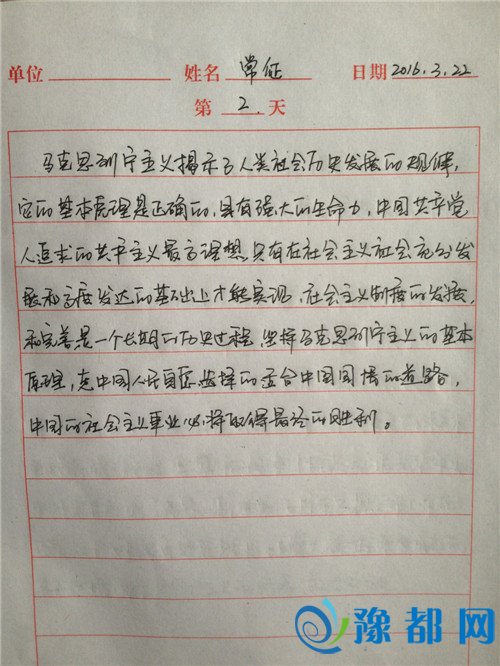 单位 姓名 常征 日期 2016.3.22
第 2 天
马克思列宁主义揭示了人类社会历史发展的规律,
它的基本原理是正确的,具有强大的生命力,中国共产党
人追求的共产主义最高理想,只有在社会主义社会充分发
展和高度发达的基础上才能实现,社会主义制度的发展,
和完善是一个长期的历史过程,坚持马克思列宁主义的基本
原理,走中国人民自愿选择的适合中国国情的道路,
中国的社会主义事业必将取得最终的胜利。
豫都网